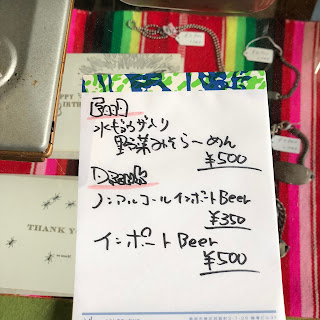 Food
水ぎょうざ入り
野菜みそらーめん
¥500
Drink
ノンアルコールインポートBeer
¥350
インポートBeer
¥500
THANK YO